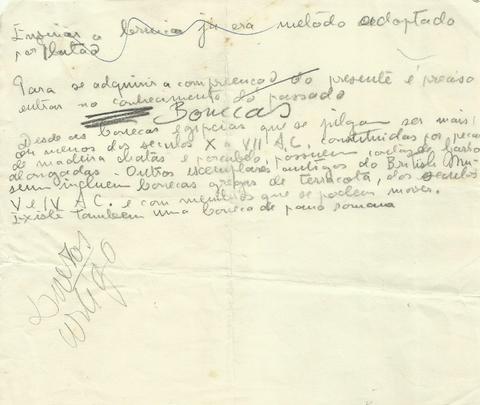 Ensinar a b já era metódo adoptado
por Platão
Para se adquirir a compreenção do presente é preciso
entrar no conhecimento do passado
Bonecas
Desde as bonecas egipcias que se julgam ser mais
ou menos dos seculos X a VII A.C. constituidas por peças
de madeira chatas e parecidas, possuem de barro
alongadas - Outros exemplares antigos do British Mu-
seum incluem bonecas gregas de terracota, dos seculos
V e IV A.C. e com membros que se podem mover.
Existe tambem uma boneca de pano romana